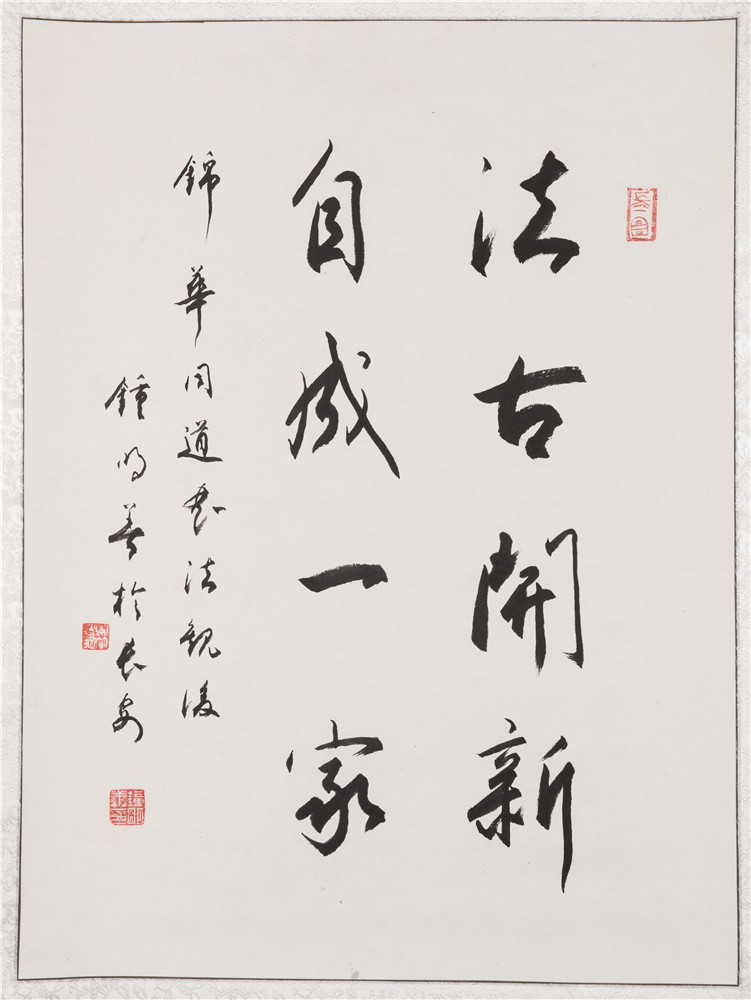 法古開新
自成一家
錦華同道書法觀後
鍾明善於長安